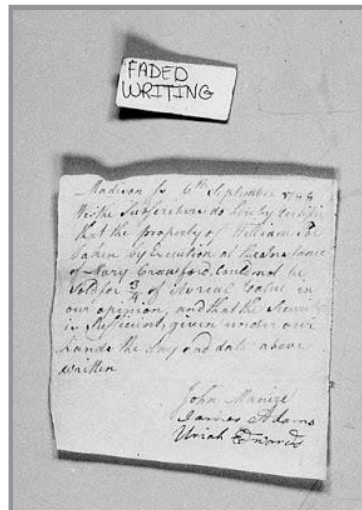 FADED
WRITING
Madison 6th September
We the Subscribers do hereby Certifie
that the property of William
taken by Execution at the Instance
of Mary Crawford, Could not be
Sold for 3/4 of its real Value in
our opinion, and that the Security
is Sufficient, given under our
hands the day and date above
written
John
James Adams
Uriah Edwards